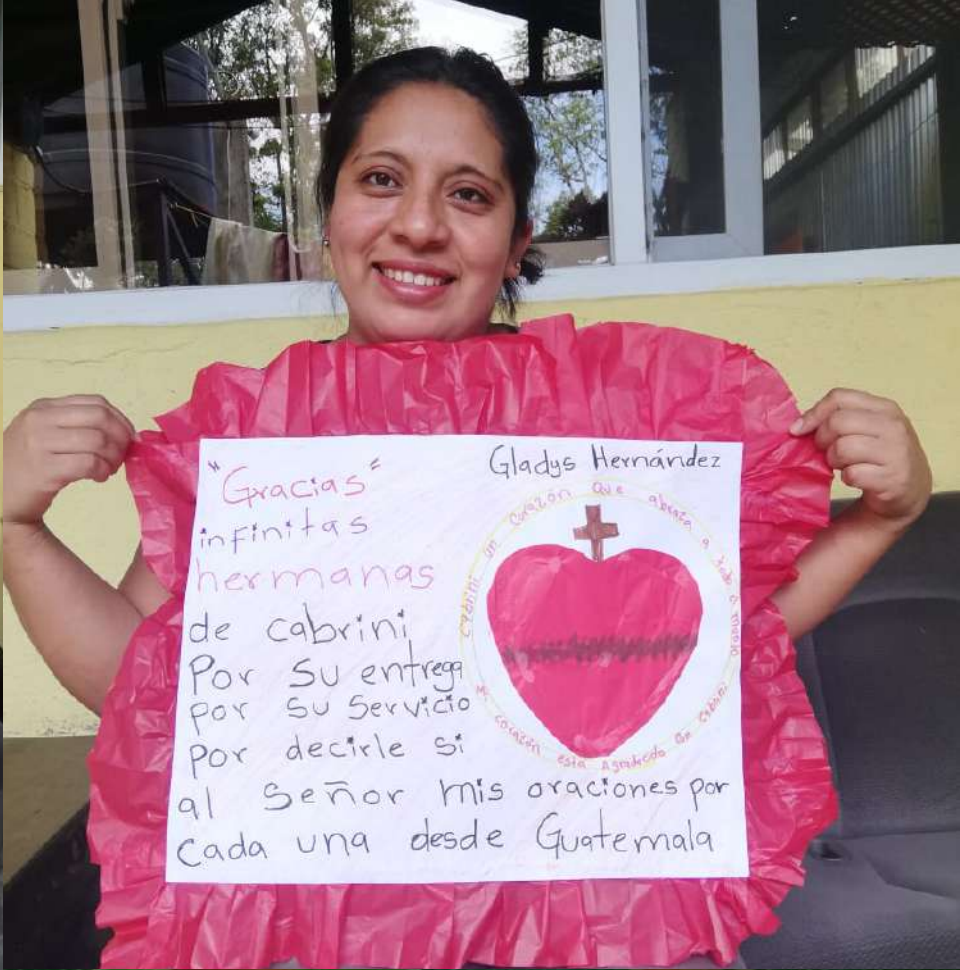 "Gracias"
infinitas
hermanas
de cabrini
Por su entrega
por su servicio
por decirle si
al Señor mis oraciones por
cada una desde Guatemala
Gladys Hernández
Cabrini un corazón que abraza a todo el mundo
Mi corazón esta Agradecido